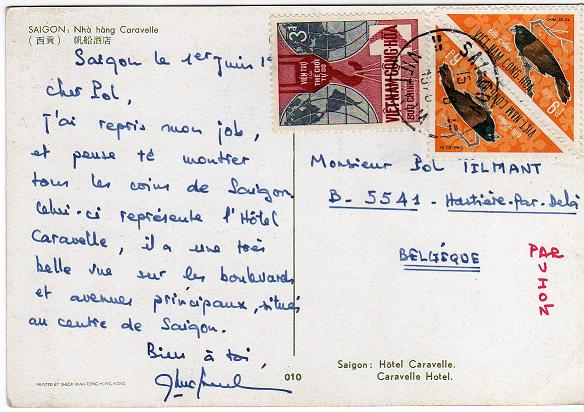 SAIGON: Nhà hàng Caravelle
(西貢) 帆船酒店
Saigon le 1er Juin
cher Pol,
J'ai repris mon job,
et pense te montrer
tous les coins de Saigon.
Celui-ci représente l'Hôtel
Caravelle, il a une très
belle vue sur les boulevards
et avenues principaux, situés
au centre de Saigon.
Bien à toi,
PRINTED BY SHECK WAH TONG HONG KONG
010
3đ
VIỆN TRỢ THẾ GIỚI TỰ DO
VIỆT-NAM CỘNG-HÒA
BƯU-CHÍNH
VIỆT-NAM CỘNG-HÒA
VIỆT-NAM CỘNG-HÒA
SAIGON
Monsieur Pol TILMANT
B-5541-Hastière-Par-Delà
BELGÉQUE
PAR
Saigon: Hôtel Caravelle.
Caravelle Hotel.